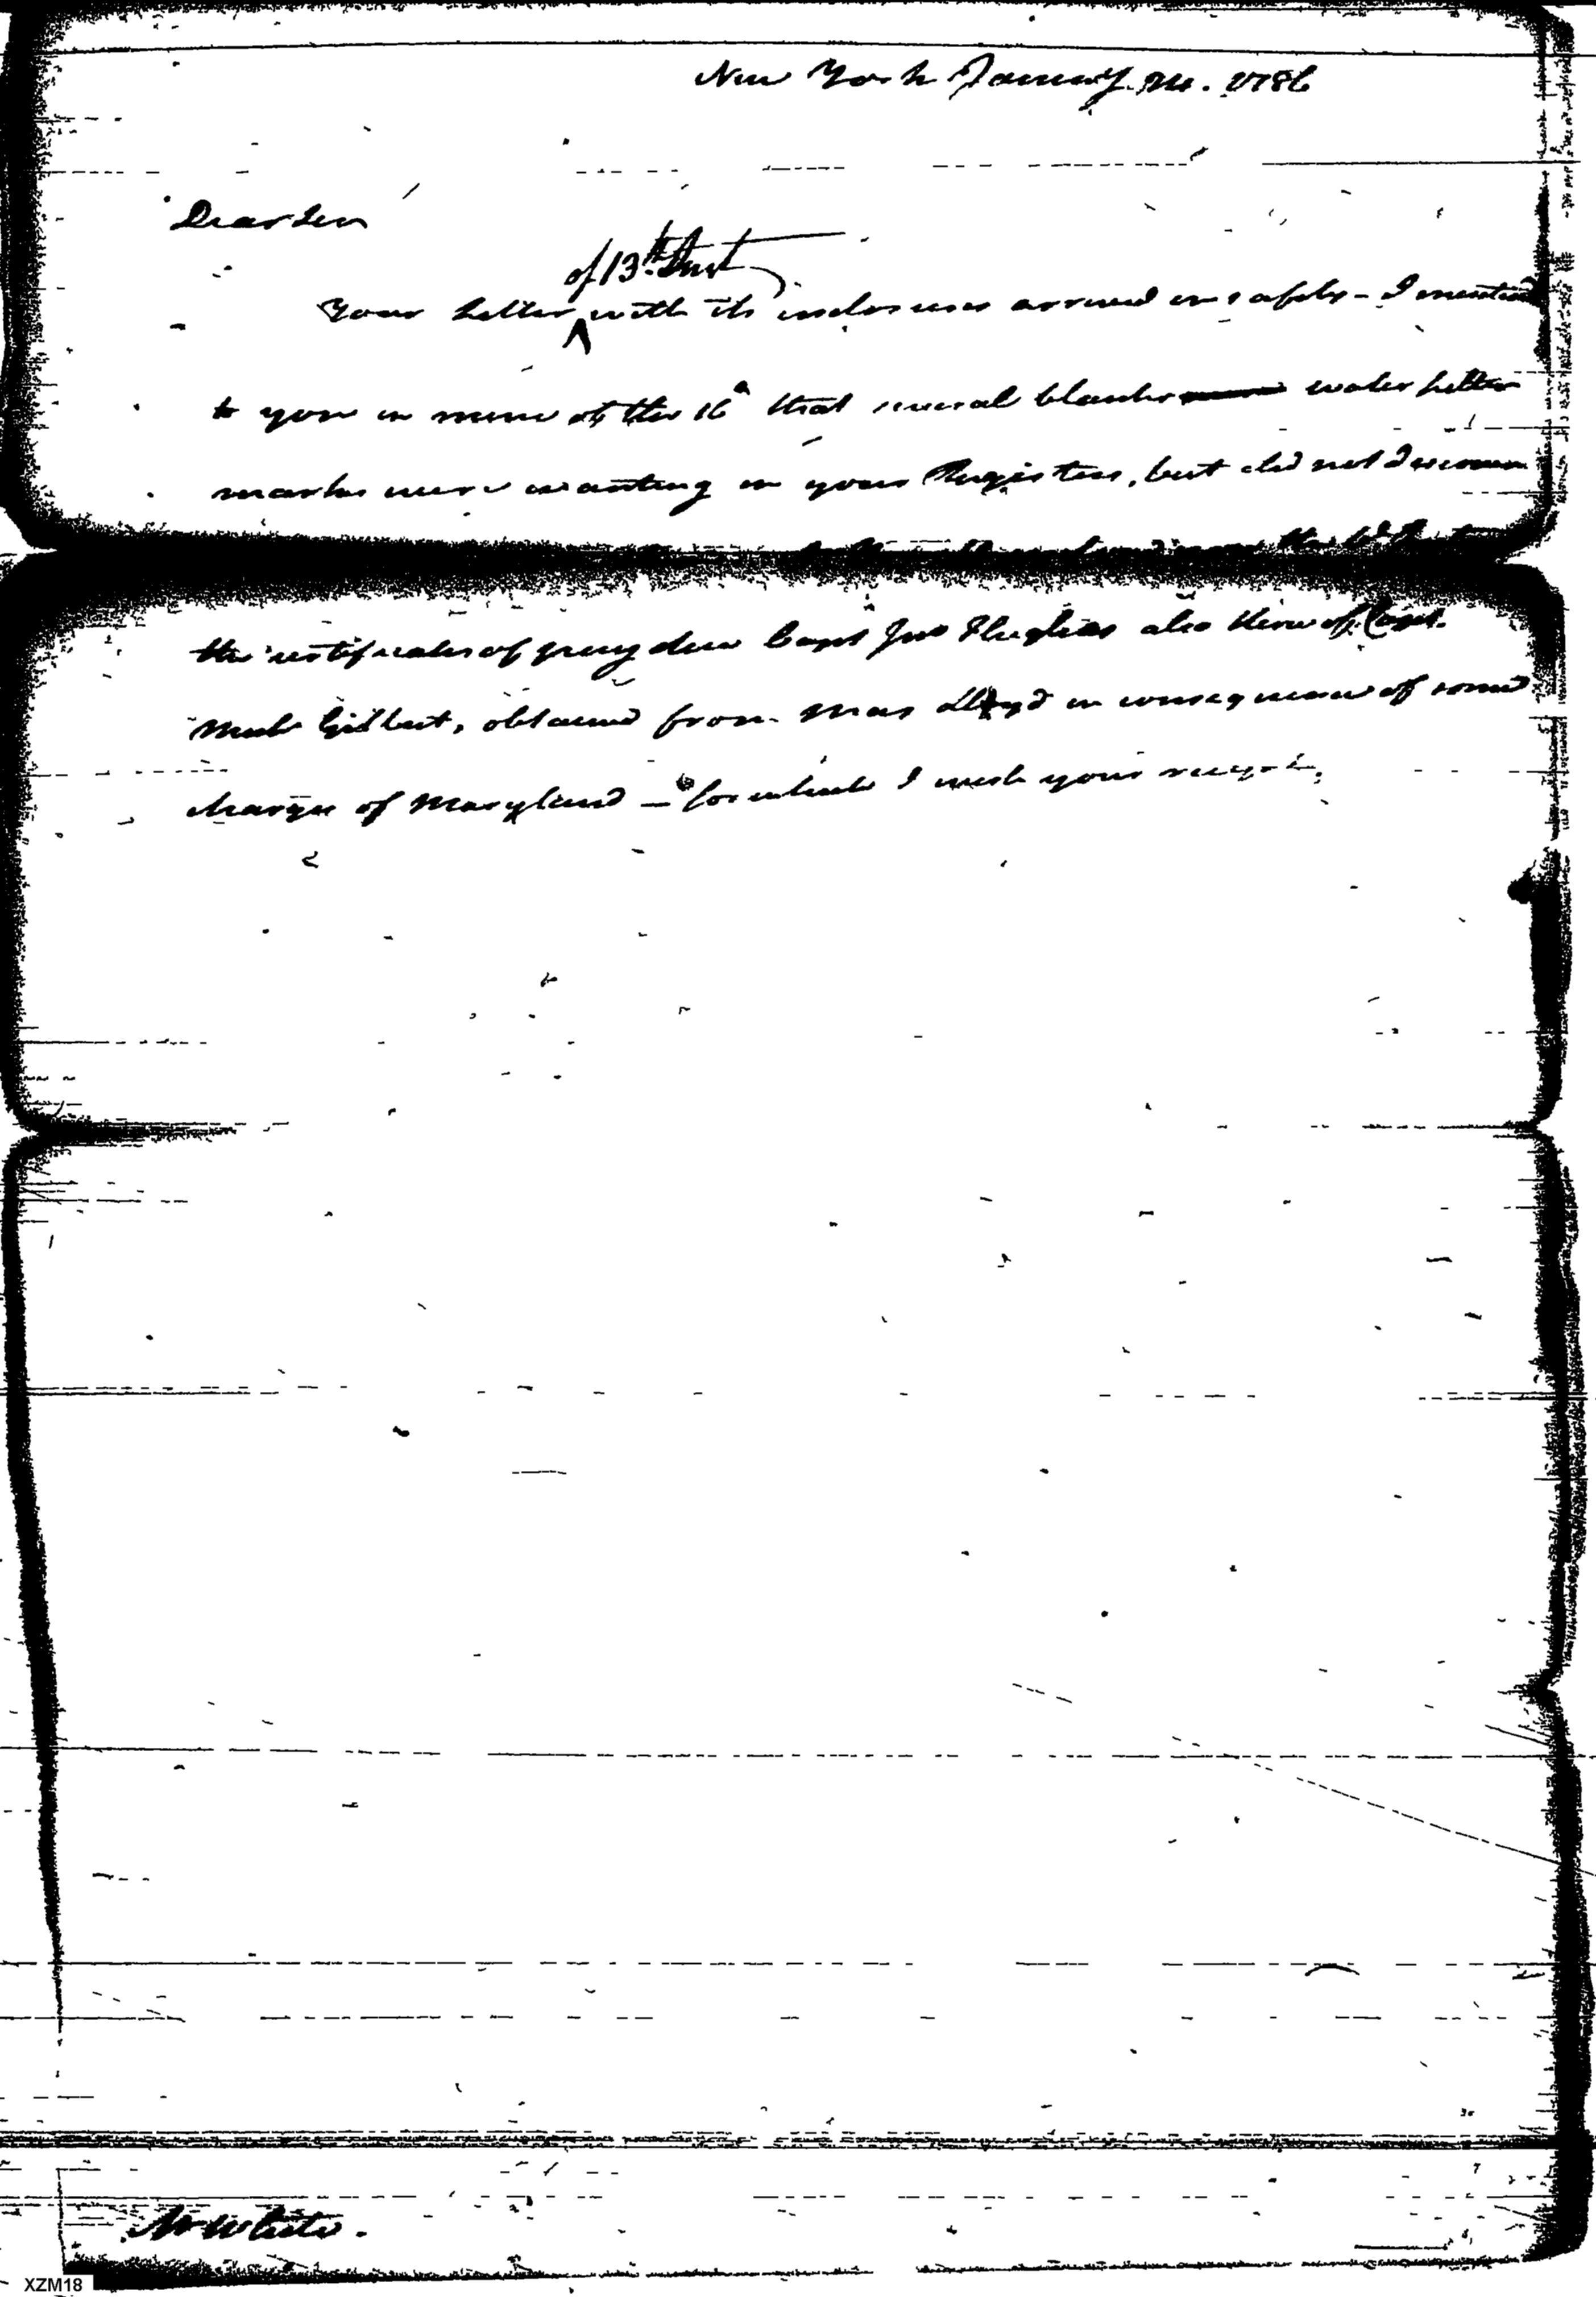 New York January 24. 1786
Dear Sir
of 13th. Inst
Your letter with its inclosures arrived in safety - I mentioned
to you in mine of the 16th that several blanks water letter
marks were wanting in your Register, but did not discover
the certificates of pay due Capt Jno Hughes also those of Capt.
Mich Gilbert, obtained from Mr Lloyd in consequence of some
charge of Maryland - for which I wish your receipt.
Mr White.
XZM18